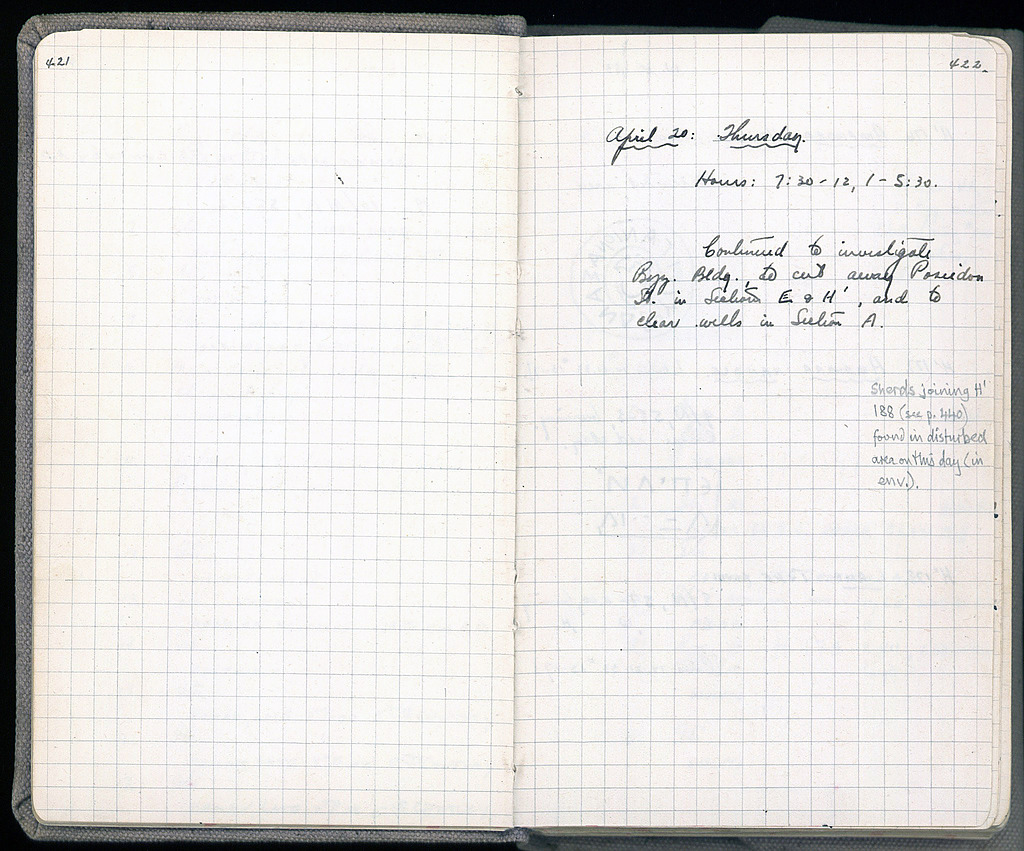 421
422.
April 20: Thursday.
Hours: 7:30-12, 1-5:30.
Continued to investigate
Byz. Bldg., to cut away Poseidon
St. in Sections E & H', and to
clear wells in Section A.
Sherds joining H'
188 (see p. 440)
found in disturbed
area on this day (in
env.).